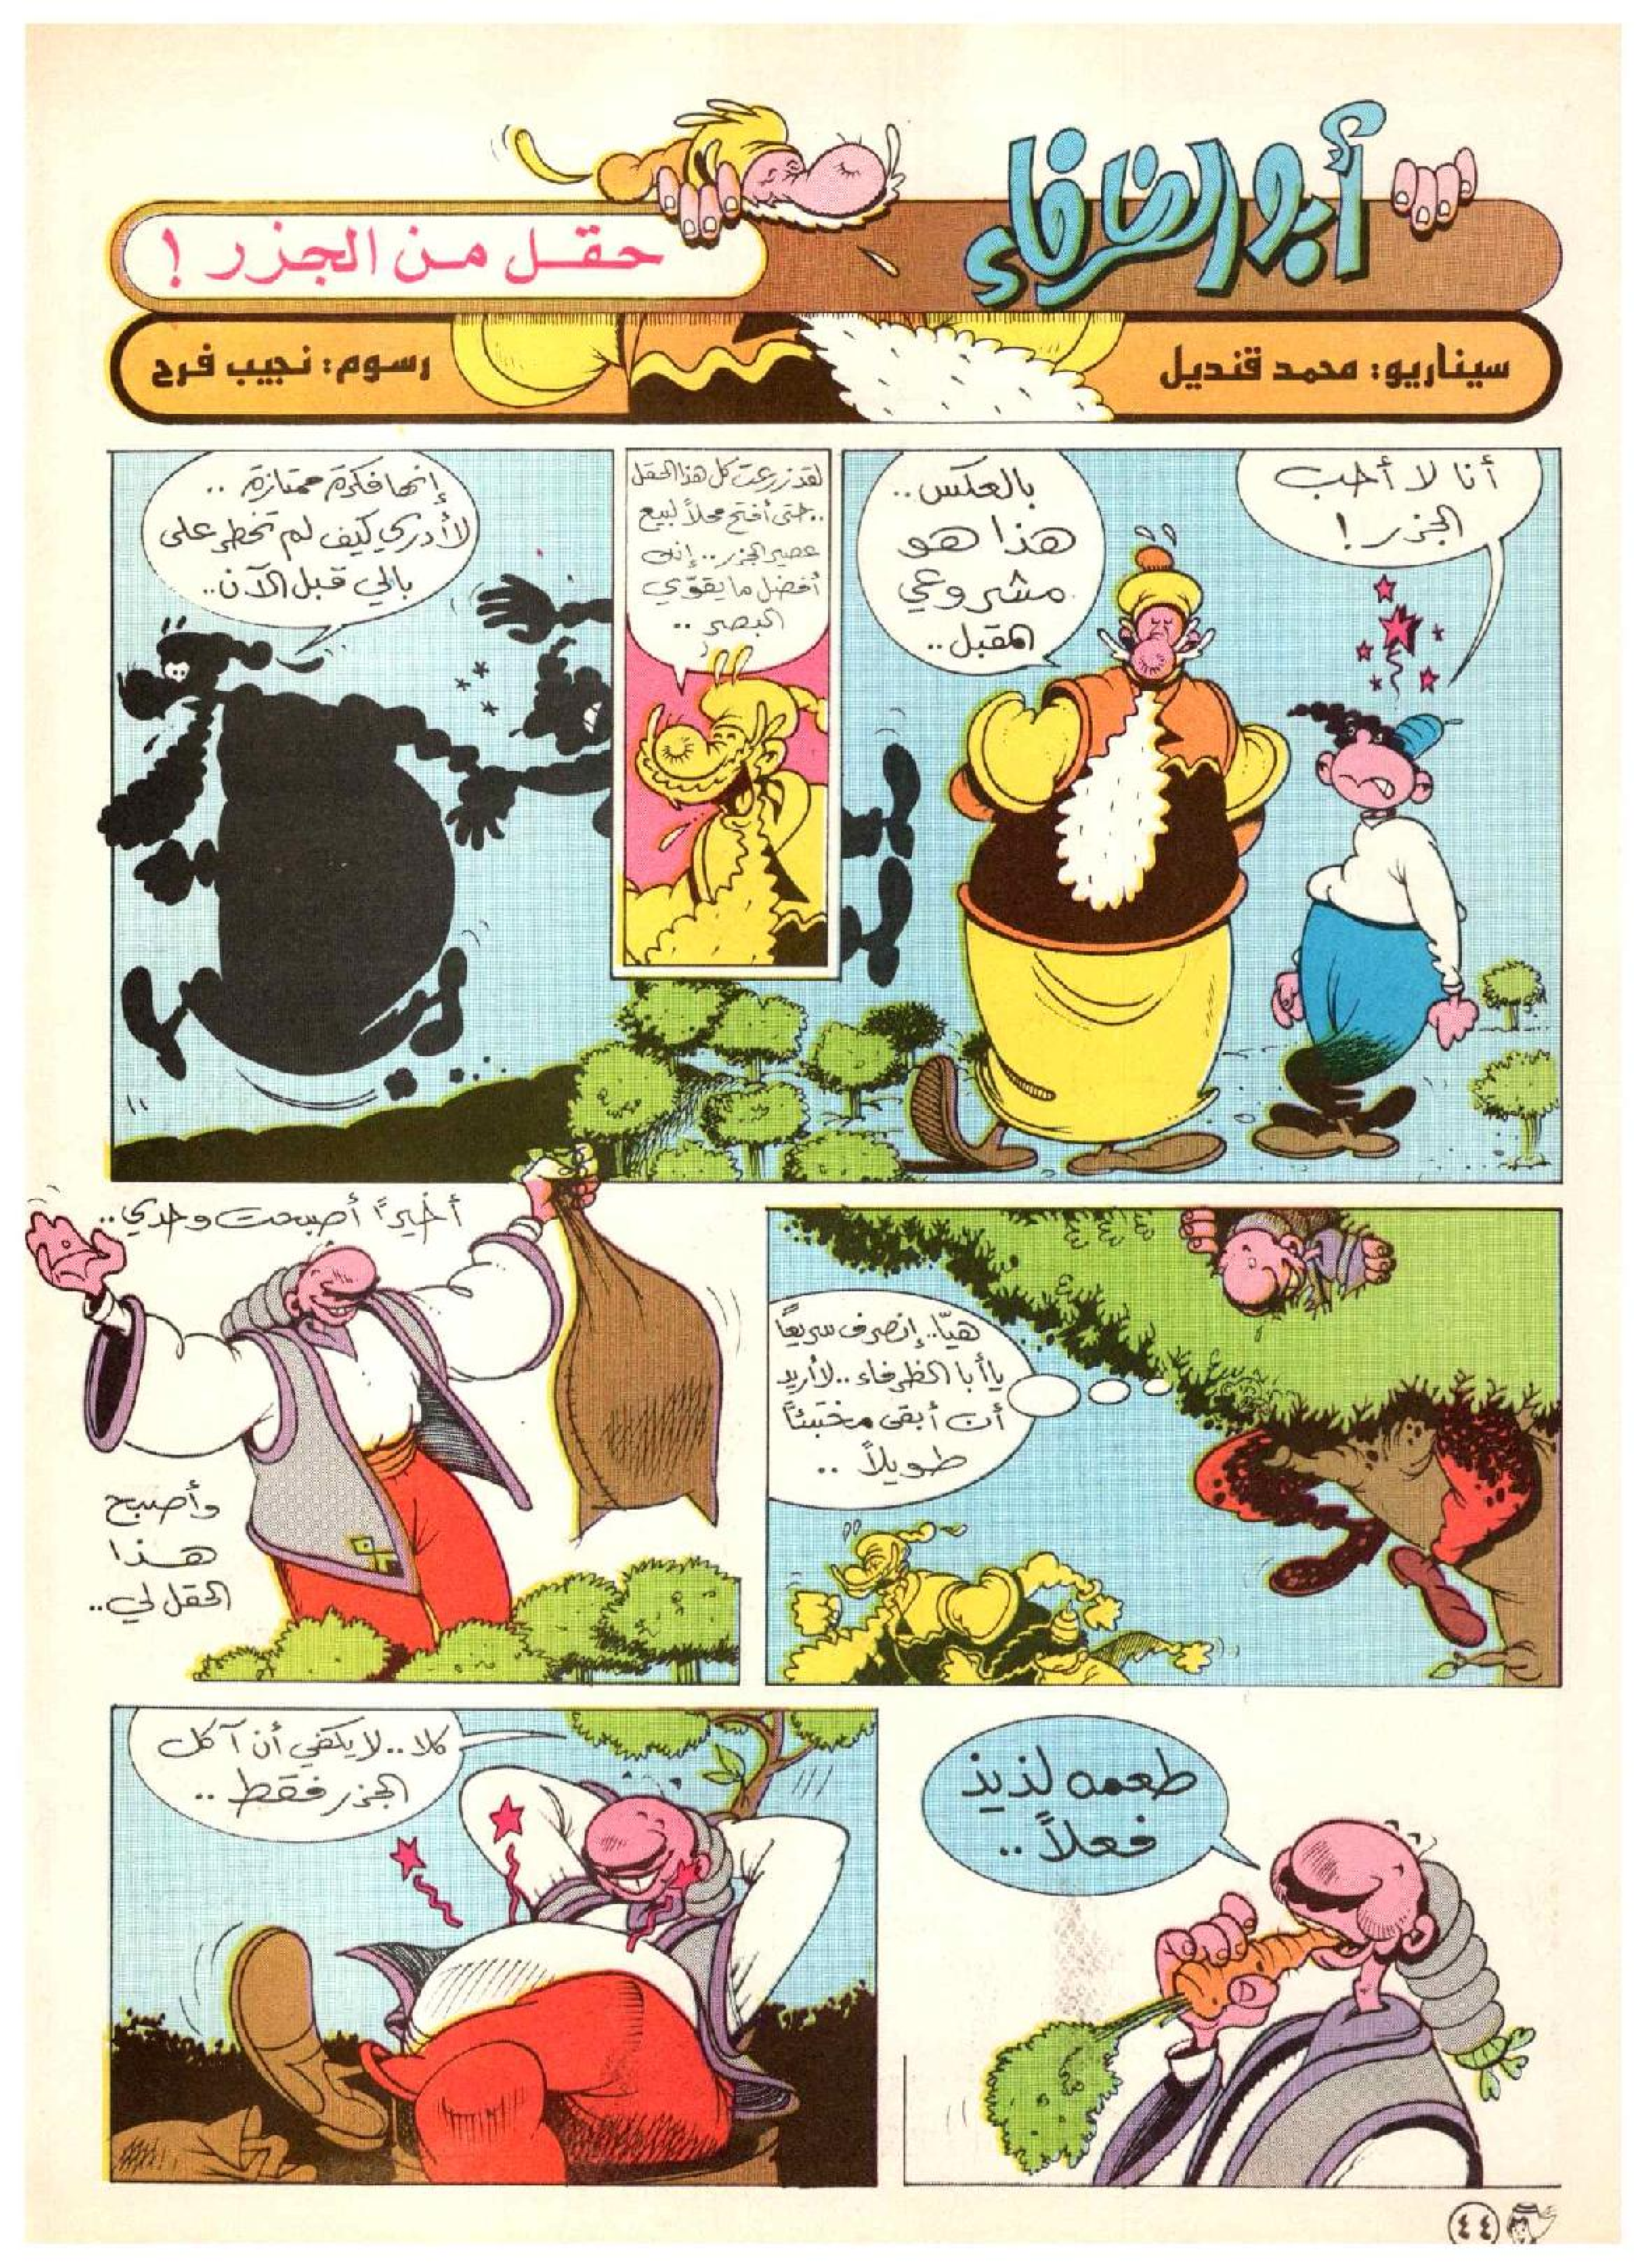 أبو الظرفاء
حقل من الجزر !
سيناريو: محمد قنديل
رسوم: نجيب فرح
أنا لا أحب
الجزر !
بالعكس ..
هذا هو
مشروعي
المقبل ..
لقد زرعت كل هذا الحقل
.. حتى أفتح محلاً لبيع
عصير الجزر .. إنه
أفضل ما يقوّي
البصر ..
إنها فكرة ممتازة ..
لا أدري كيف لم تخطر على
بالي قبل الآن ..
هيّا .. إنصرف سريعاً
يا أبا الظرفاء .. لا أريد
أن أبقى مختبئاً
طويلاً ..
أخيراً أصبحت وحدي ..
وأصبح
هذا
الحقل لي ..
طعمه لذيذ
فعلاً ..
كلا .. لا يكفي أن آكل
الجزر فقط ..
٤٤